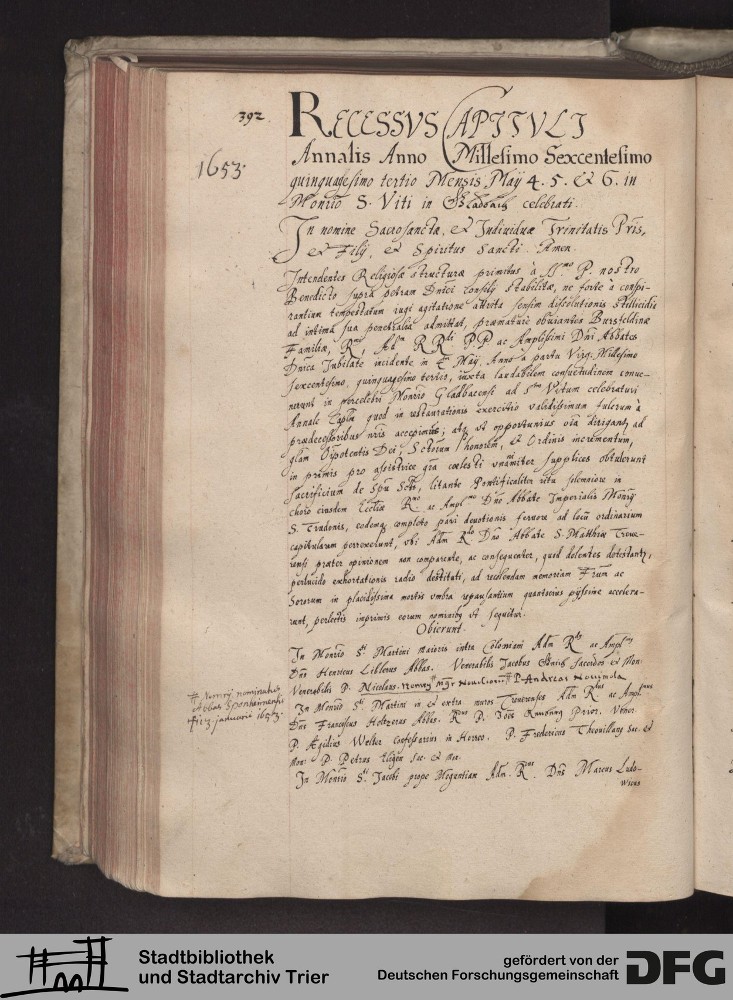 392
1653.
RECESSVS CAPITVLI
Annalis Anno Millesimo Sexcentesimo
quinquagesimo tertio Mensis Maÿ 4. 5. & 6. in
Monrio S. Viti in Gladbach celebrati.
In nomine Sacrosanctæ, & Individuæ Trinitatis Pris,
& Filÿ, & Spiritus Sancti. Amen.
Intendentes Religiosæ structuræ primitus à SSmo P. nostro
Benedicto supra petram Dnici Consilÿ stabilitæ, ne forte à conspi-
rantium tempestatum iugi agitatione attrita sensim dissolutionis stillicidia
ad intima sua penetralia admittat, præmaturè obuiantes Bursfeldinæ
Familiæ, Rmi, Adm RRdi PP. ac Amplissimi Dni Abbates
Dnica Jubilate incidente in 4tam Maÿ, Anno a partu Virg: Millesimo
sexcentesimo, quinquagesimo tertio, iuxta laudabilem consuetudinem conue-
nerunt in percelebri Monrio Gladbacensi ad Stum Vitum celebraturi
Annale Caplm quod in restaurationis exercitio validissimum fulcrum à
prædecessoribus nris accepimus; atq, vt opportunius oia dirigantr ad
glam Oipotentis Dei, Sctorum honorem, & Ordinis incrementum,
in primis pro assistrice gra coelesti vnamiter supplices obtulerunt
sacrificium de Spu Scto, litante Pontificaliter ritu solemniore in
choro eiusdem Ecclæ Rmo ac Amplmo Dno Abbate Imperialis Monrÿ
S. Trudonis, eodemq completo pari deuotionis feruore ad locu ordinarium
capitularem perrexerunt, vbi Adm Rdo Dno Abbate S. Matthiæ Treue-
rensi præter opinionem non comparente, ac consequenter, quod dolentes detestantr,
perlucido exhortationis radio destituti, ad recolendam memoriam Frum ac
Sororum in placidissima mortis vmbra repausantium quantocius pÿssime accelera-
runt, perlectis inprimis eorum nominibq vt sequitur.
Obierunt.
In Monrio Sti Martini maioris intra Coloniam Adm Rdus ac Amplmus
Dns Henricus Liblerus Abbas. Venerabilis Jacobus Sacerdos & Mon:
Venerabilis P. Nicolaus P. Andreas
In Monrio Sti Martini in & extra muros Treuerenses Adm Rdus ac Amplmus
Dns Franciscus Holtzerus Abbas. Rdus P. Joes Prior. Vener.
P. Ægidius Welter Confessarius in Herreo. P. Fredericus Theonillanq Sac. &
Mon: P. Petrus Eligen Sac. & Mon.
In Monrio Sti Jacobi prope Mogantiam Adm. Rdus Dns Marcus Ludo-
wicus
nominatus
Abbas Sponheimensis
fuit 3 januarii 1653.
Stadtbibliothek
und Stadtarchiv Trier
gefördert von der
Deutschen Forschungsgemeinschaft
DFG